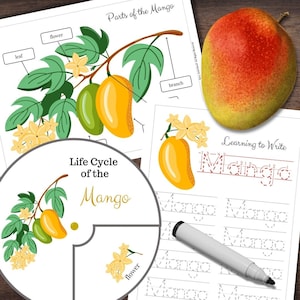 Parts of the Mango
flower
leaf
branch
Life Cycle
of the
Mango
flower
Learning to Write
Mango
Mango Mango
Mango Mango
Mango Mango
Mango Mango